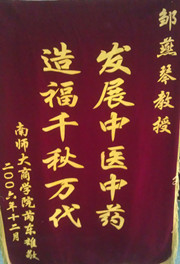 邹燕琴教授
发展中医中药
造福千秋万代
南师大商学院蒋东雄敬
二〇〇六年十二月